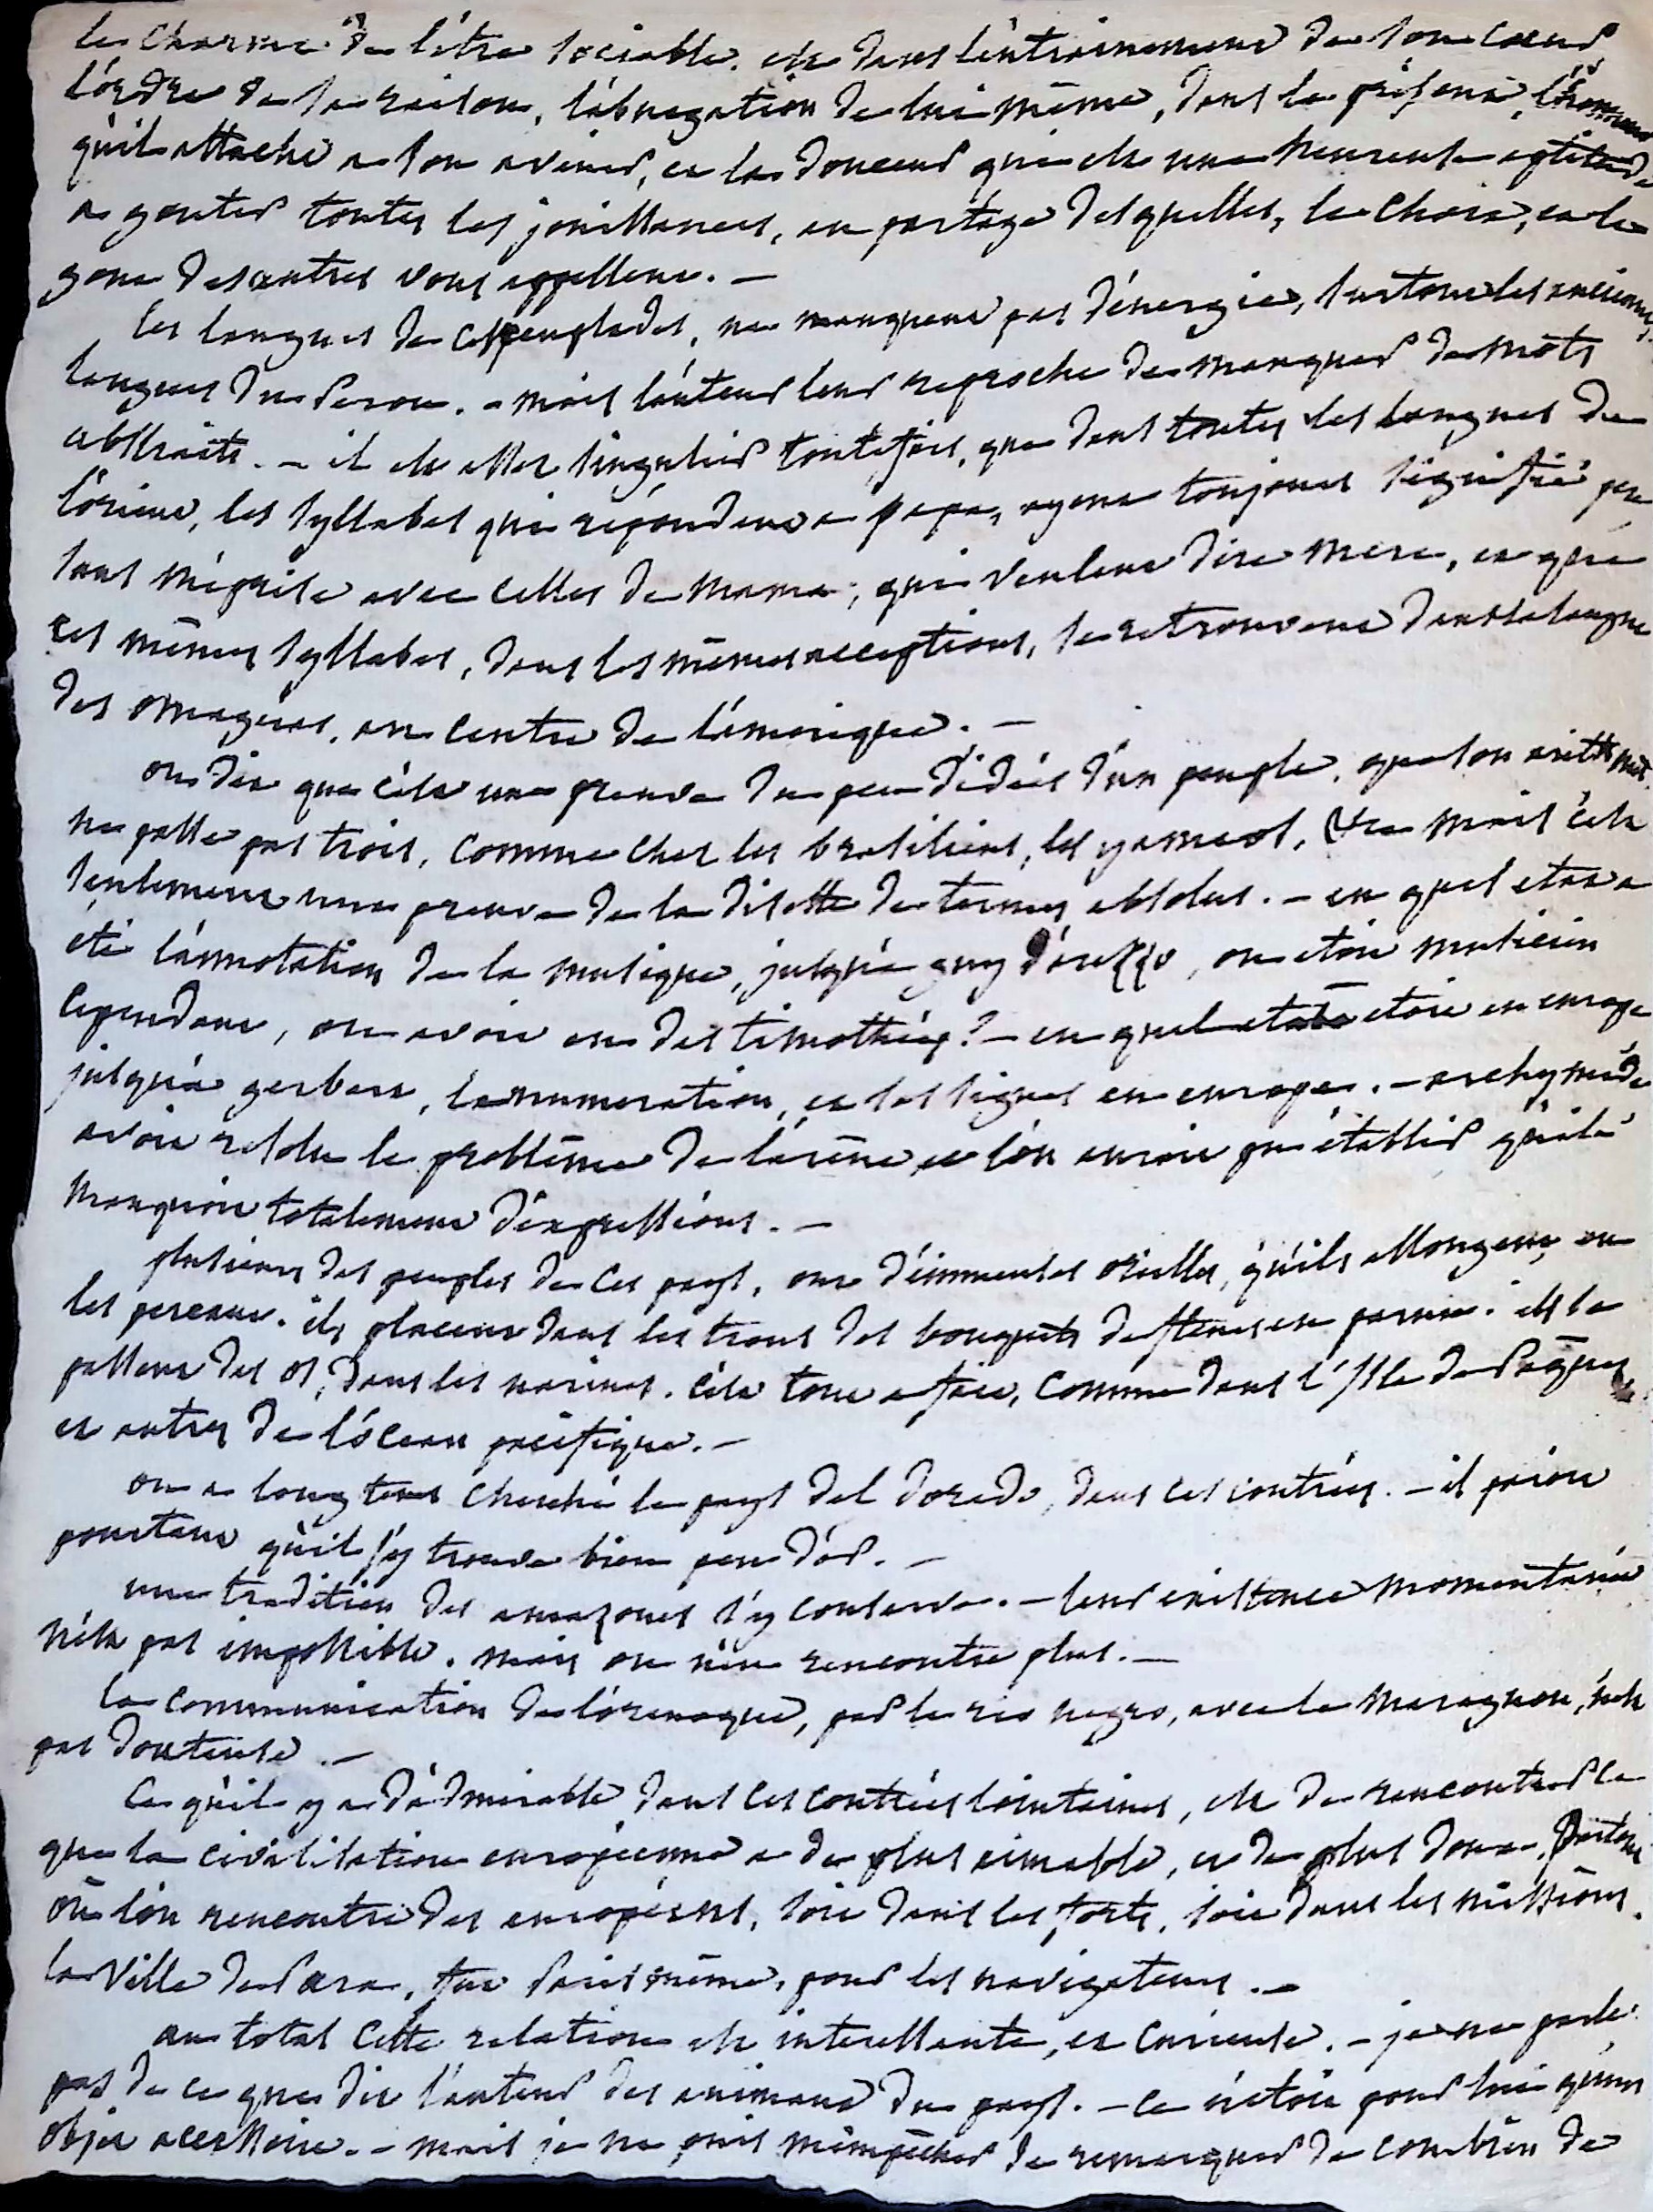 le charme de l'être sociable. est dans l'entrainement de son coeur
l'ordre de la raison, l'abnegation de lui même, dans le présent,
qu'il attache a son avenir, et la douceur qui est une heureuse aptitude
a gouter toutes les jouissances, au partage desquelles, le choix, et le
gout des autres vous appellent. —
les langues de ces peuplades, ne manquent pas d'énergie, surtout les anciennes
langues du Perou. - mais l'auteur leur reproche de manquer de mots
abstraits. - il est assez singulier toutefois, que dans toutes les langues de
l'orient, les syllabes qui répondent a papa, ayent toujours signifié pere
sans méprise avec celles de mama, qui veulent dire mere, et que
ces mêmes syllabes, dans les mêmes acceptions, se retrouvent dans la langue
des omaguas, au centre de l'amerique. —
on dit que c'est une preuve du peu d'idées d'un peuple, que son arithmet.
ne passe pas trois, comme chez les brasiliens, les yameos, &ca mais c'est
seulement une preuve de la disette de termes absolus. - en quel état a
été l'annotation de la musique, jusqu'a guy d'arezzo, on etoit musicien
cependant, on avoit eu des timothées? - en quel etat etoit en europe
jusqu'a gerbert, la numeration, et les signes en europe. - archymede
avoit resolu le problême de l'arêne et l'on auroit pu établir qu'il
manquoit totalement d'expressions. —
plusieurs des peuples de ces pays, ont d'immenses oreilles, qu'ils allongent, en
les perçant. ils placent dans les trous des bouquets de fleurs en parure. ils se
passent des os, dans les narines. c'est tout a fait, comme dans l'Isle de Pâques
et autres de l'océan pacifique. —
on a long tems cherché le pays del dorado, dans ces contrées. - il paroit
pourtant qu'il s'y trouve bien peu d'or. —
une tradition des amazones s'y conserve. - leur existence momentanée
n'est pas impossible. mais on n'en rencontre plus. —
la communication de l'orenoque, par le rio negro, avec le maragnon, n'est
pas douteuse. —
ce qu'il y a d'admirable dans ces contrées lointaines, est de rencontrer ce
que la civilisation européenne a de plus aimable, et de plus doux. partout
où l'on rencontre des européens, soit dans les forts, soit dans les missions.
la ville de Para, fut Paris même, pour les navigateurs. —
au total cette relation est interessante, et curieuse. - je ne parle
pas de ce que dit l'auteur des animaux du pays. - ce n'etoit pour lui qu'un
objet accessoire. - mais je ne puis m'empêcher de remarquer de combien de